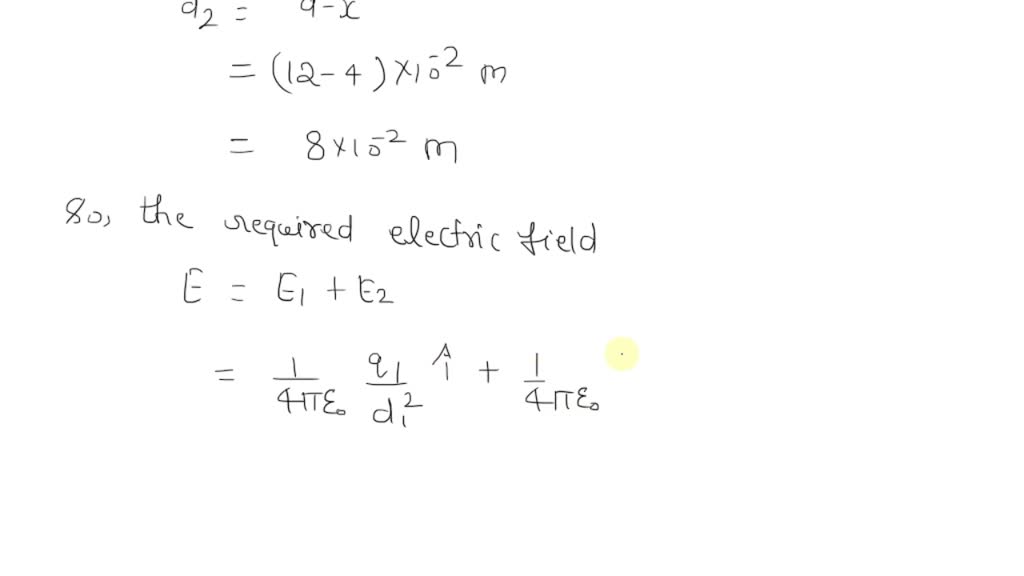 d₂ = a-x
= (12-4)×10⁻² m
= 8×10⁻² m
So, the required electric field
E = E₁ + E₂
= 1/4πε₀ q₁/d₁² î + 1/4πε₀